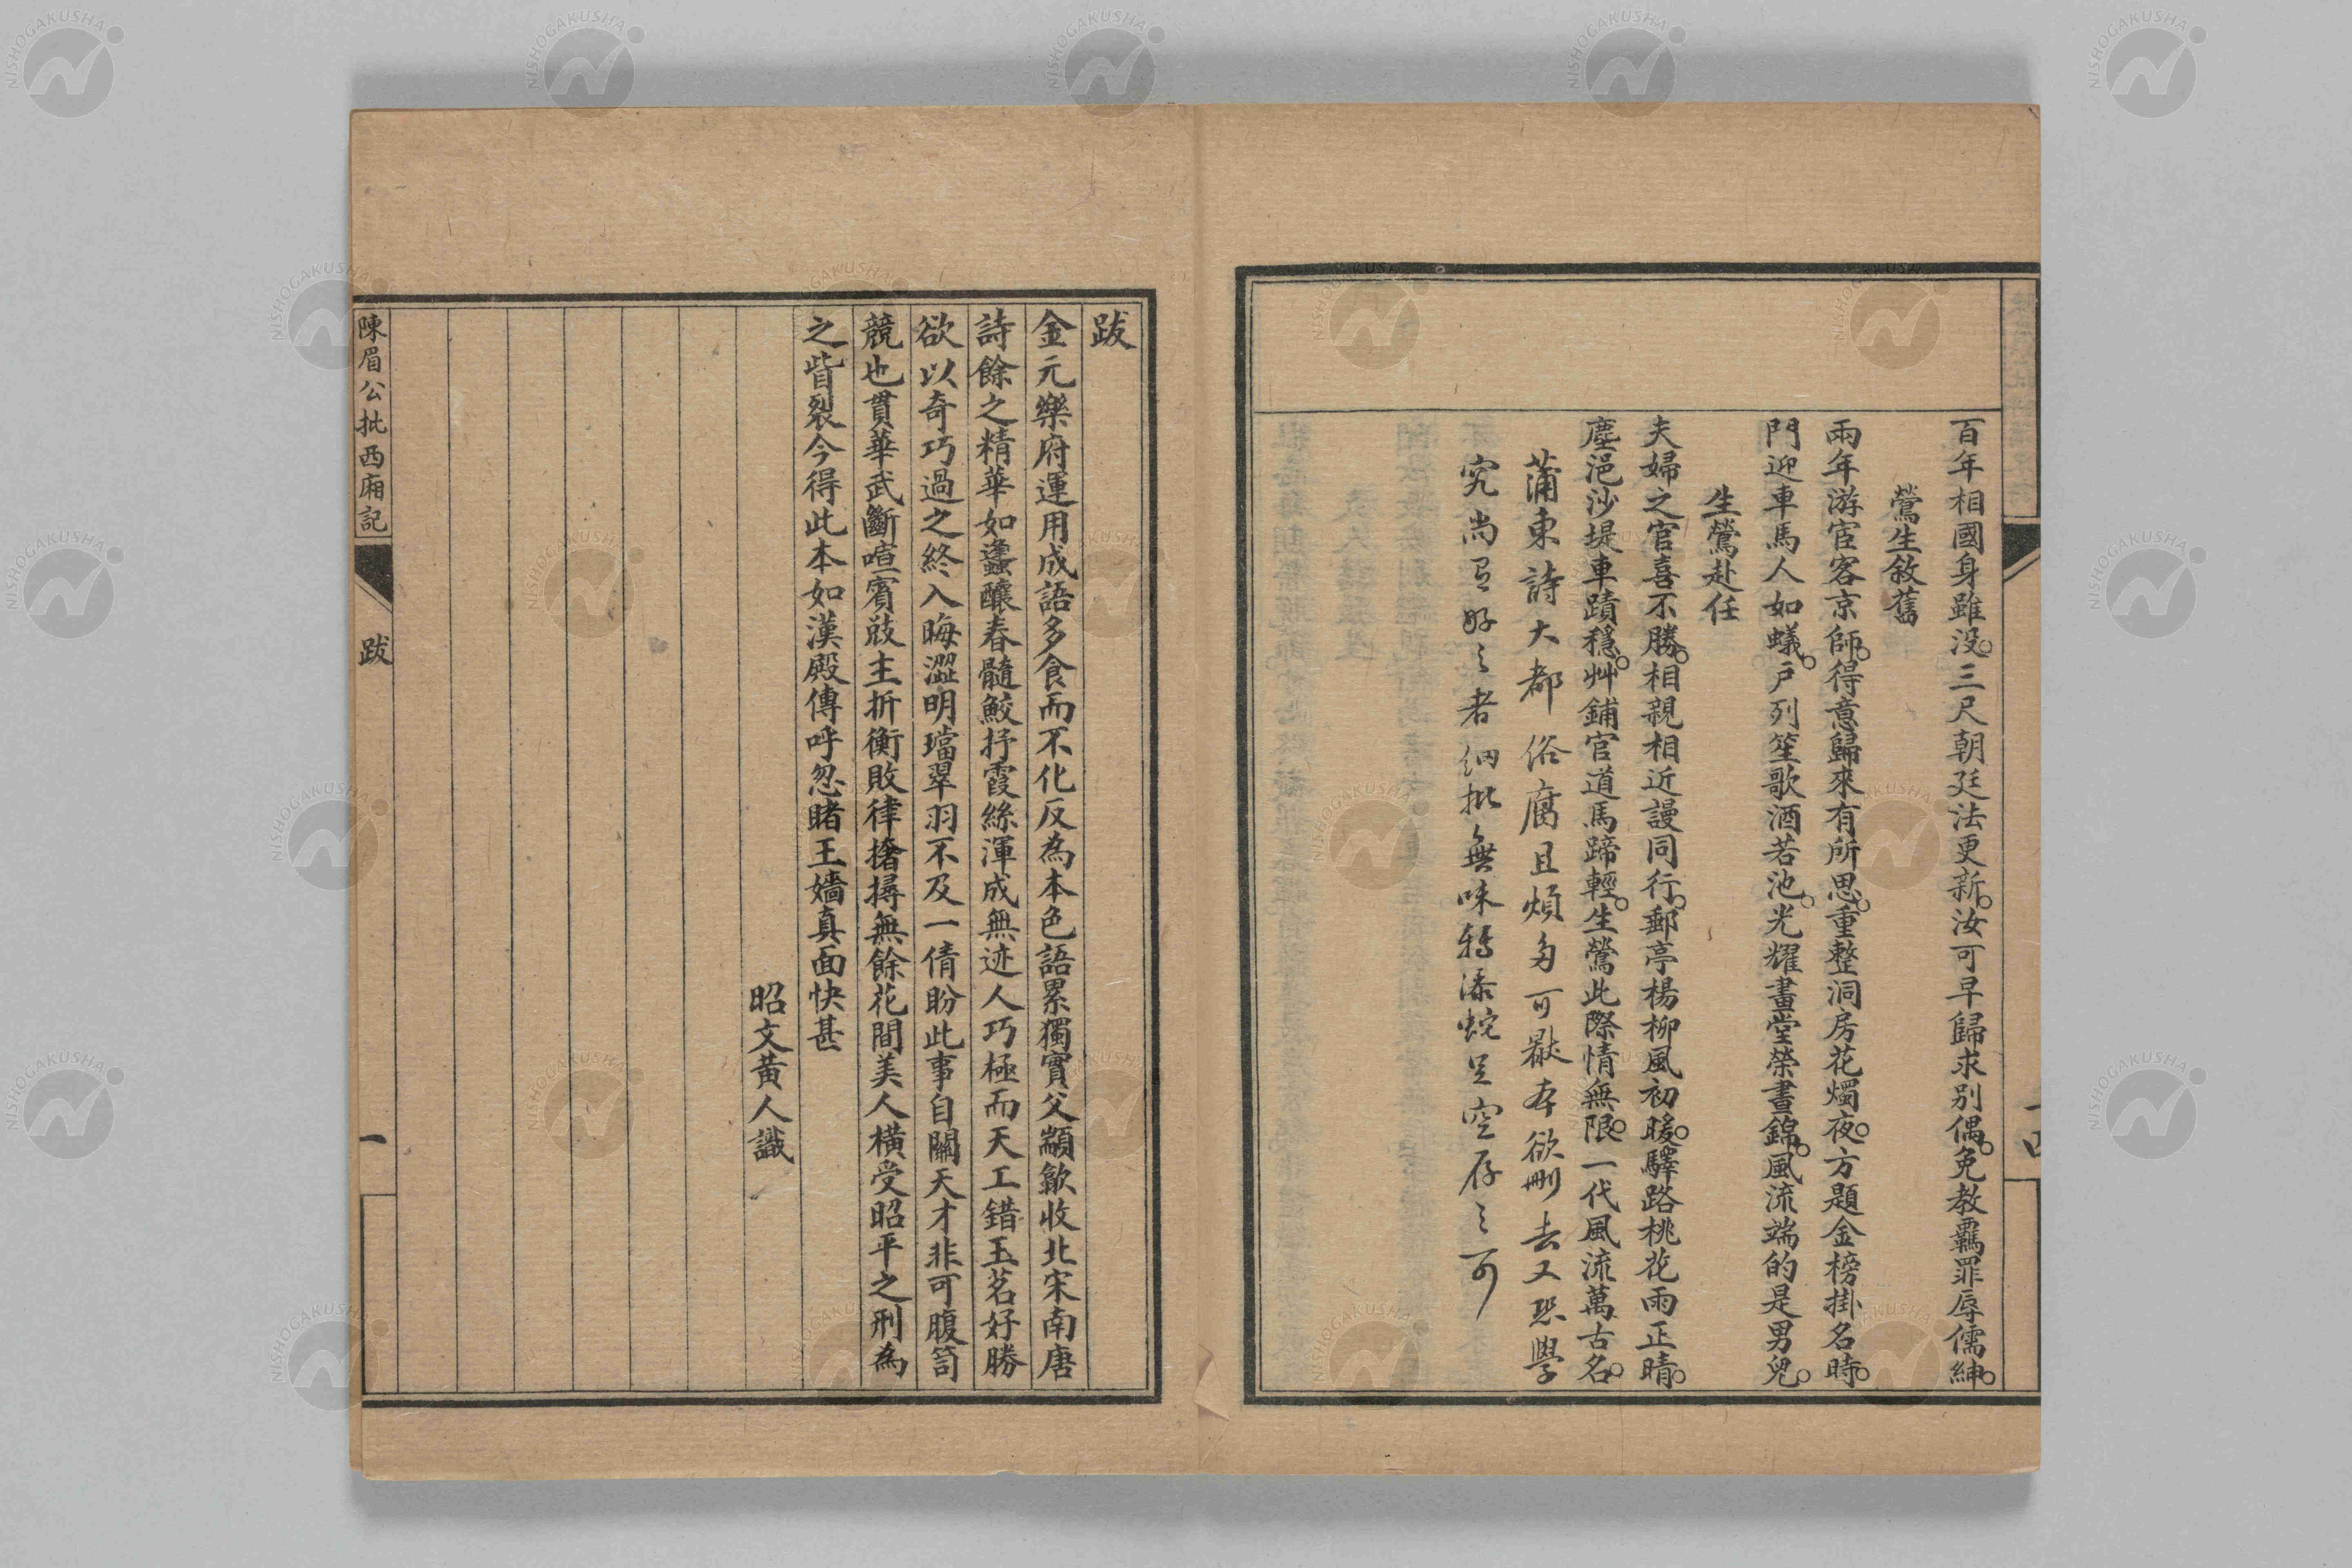 百年相國身雖没三尺朝廷法更新汝可早歸求别偶免教羈罪辱儒紳
鶯生敘舊
兩年游宦客京師得意歸來有所思重整洞房花燭夜方題金榜掛名時
門迎車馬人如蟻戶列笙歌酒若池光耀畫堂榮晝錦風流端的是男兒
生鶯赴任
夫婦之官喜不勝相親相近謾同行郵亭楊柳風初暖驛路桃花雨正晴
塵浥沙堤車蹟穩艸鋪官道馬蹄輕生鶯此際情無限一代風流萬古名
蒲東詩大都俗腐且煩多可厭本欲刪去又恐學
究尚有好之者細批無味轉添蛇足空存之可
跋
金元樂府運用成語多食而不化反為本色語累獨實父顓歈收北宋南唐
詩餘之精華如蠭釀春髓鮫抒霞絲渾成無迹人巧極而天工錯玉茗好勝
欲以奇巧過之終入晦澀明璫翠羽不及一倩盼此事自關天才非可腹笥
競也貫華武斷喧賓敁主折衡敗律撦撏無餘花間美人橫受昭平之刑為
之眥裂今得此本如漢殿傳呼忽睹王嬙真面快甚
昭文黃人識
陳眉公批西廂記
跋
一
NISHOGAKUSHA